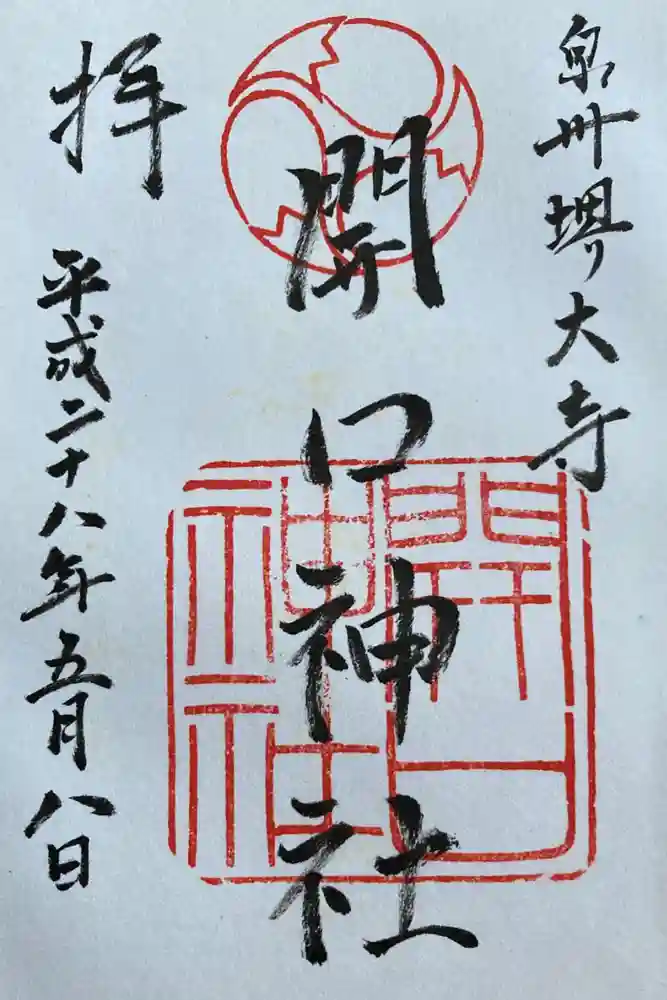 泉州堺大寺
開口神社
開口神社
拝
平成二十八年五月八日